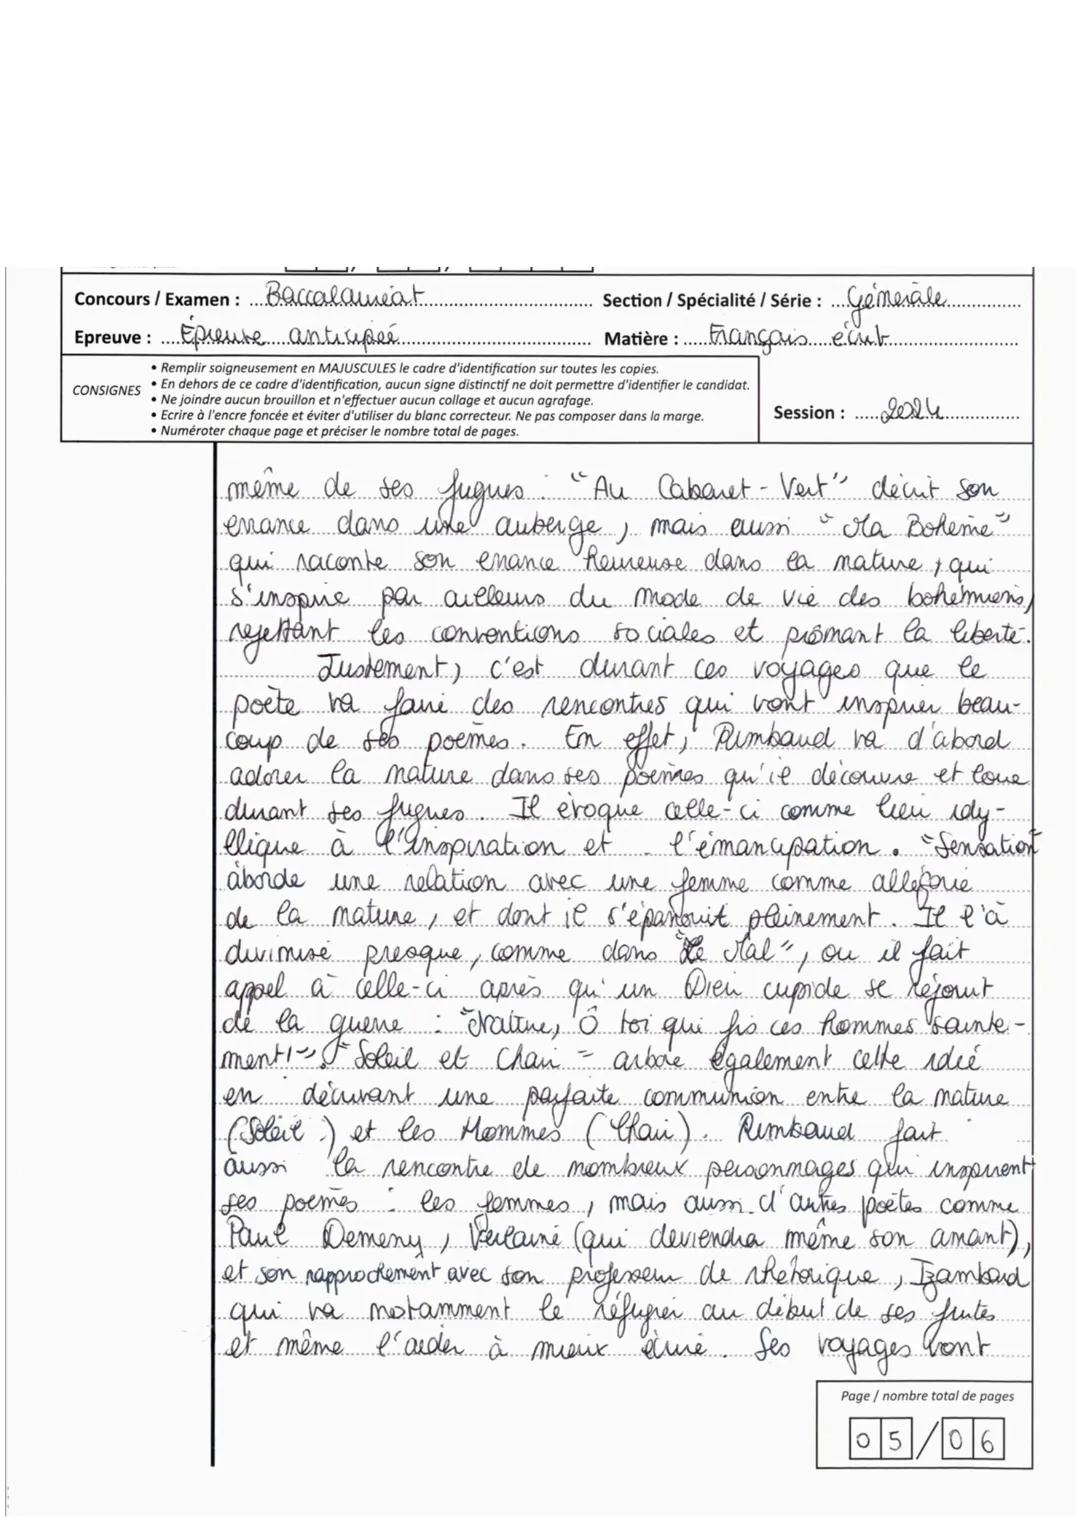 Concours / Examen : Baccalauréat Section / Spécialité / Série : Générale
Epreuve : Épreuve anticipée Matière : Français écrit
CONSIGNES
• Remplir soigneusement en MAJUSCULES le cadre d'identification sur toutes les copies.
• En dehors de ce cadre d'identification, aucun signe distinctif ne doit permettre d'identifier le candidat.
• Ne joindre aucun brouillon et n'effectuer aucun collage et aucun agrafage.
• Ecrire à l'encre foncée et éviter d'utiliser du blanc correcteur. Ne pas composer dans la marge.
• Numéroter chaque page et préciser le nombre total de pages.
Session : 2024
même de ses fugues : "Au Cabaret-Vert" décrit son
errance dans une auberge, mais aussi "Ma Bohème"
qui raconte son errance heureuse dans la nature, qui
s'inspire par ailleurs du mode de vie des bohémiens,
rejettant les conventions sociales et prônant la liberté.
Justement, c'est durant ces voyages que le
poète va faire des rencontres qui vont inspirer beau-
coup de ses poèmes. En effet, Rimbaud va d'abord
adorer la nature dans ses poèmes qu'il découvre et loue
durant ses fugues. Il évoque celle-ci comme lieu idy-
llique à l'inspiration et l'émancipation. "Sensation"
aborde une relation avec une femme comme allégorie
de la nature, et dont il s'épanouit pleinement. Il l'a
divinisé presque, comme dans "Le Mal", ou il fait
appel à celle-ci après qu'un Dieu cupide se réjouit
de la guerre : "Nature, Ô toi qui fis ces hommes sainte-
ment!". "Soleil et Chair" arbore également cette idée
en décrivant une parfaite communion entre la nature
(Soleil) et les Hommes (Chair). Rimbaud fait
aussi la rencontre de nombreux personnages qui inspirent
ses poèmes : les femmes, mais aussi d'autres poètes comme
Paul Demeny, Verlaine (qui deviendra même son amant),
et son rapprochement avec son professeur de rhétorique, Izambard
qui va notamment le réfugier au début de ses fuites
et même l'aider à mieux écrire. Ses voyages vont
Page / nombre total de pages
05/06